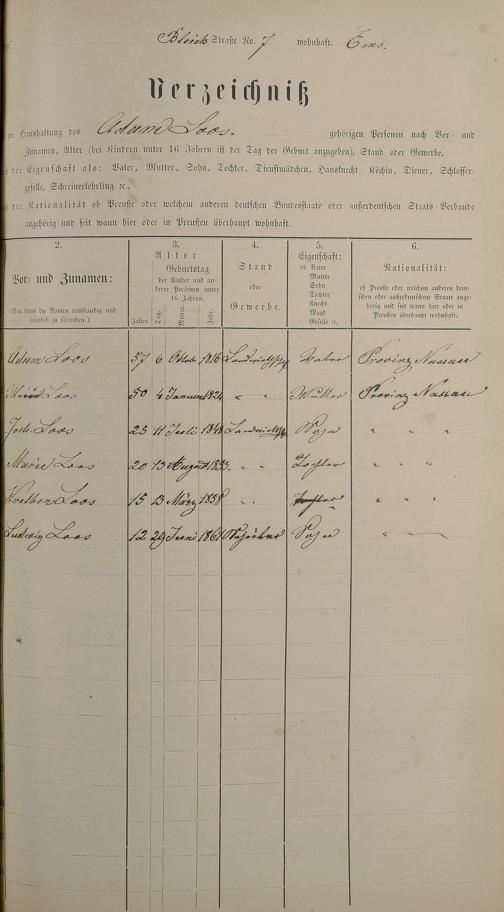 Bleich Straße No. 7 wohnhaft. Ems.
Verzeichniß
zur Haushaltung des Adam Loos. gehörigen Personen nach Vor- und
Zunamen, Alter (bei Kindern unter 16 Jahren ist der Tag der Geburt anzugeben), Stand oder Gewerbe,
der Eigenschaft als: Vater, Mutter, Sohn, Tochter, Dienstmädchen, Hausknecht, Köchin, Diener, Schlosser-
geselle, Schreinerlehrling ec.,
der Nationalität ob Preuße oder welchem anderen deutschen Bundesstaate oder außerdeutschen Staats-Verbande
angehörig und seit wann hier oder in Preußen überhaupt wohnhaft.
2.
Vor- und Zunamen:
(Man bittet die Namen vollständig und
leserlich zu schreiben.)
3.
Alter
Jahre.
Geburtstag
der Kinder und an-
derer Personen unter
16 Jahren.
Tag.
Monat.
Jahr.
4.
Stand
oder
Gewerbe.
5.
Eigenschaft:
ob Vater
Mutter
Sohn
Tochter
Knecht
Magd
Geselle ec.
6.
Nationalität:
ob Preuße oder welchem anderen deut-
schen oder außerdeutschen Staate ange-
hörig und seit wann hier oder in
Preußen überhaupt wohnhaft.
Adam Loos 57 6 Oktob. 1816 Vater Provinz Nassau
Loos 50 4 Januar 1824 " " Mutter Provinz Nassau
Joh. Loos 25 11 Juli 1848 Sohn " " "
Marie Loos 20 13 August 1853. " " Tochter " " "
Loos 15 13 März 1858 " " Tochter " " "
Ludwig Loos 12 29 Juni 1861 Sohn " "